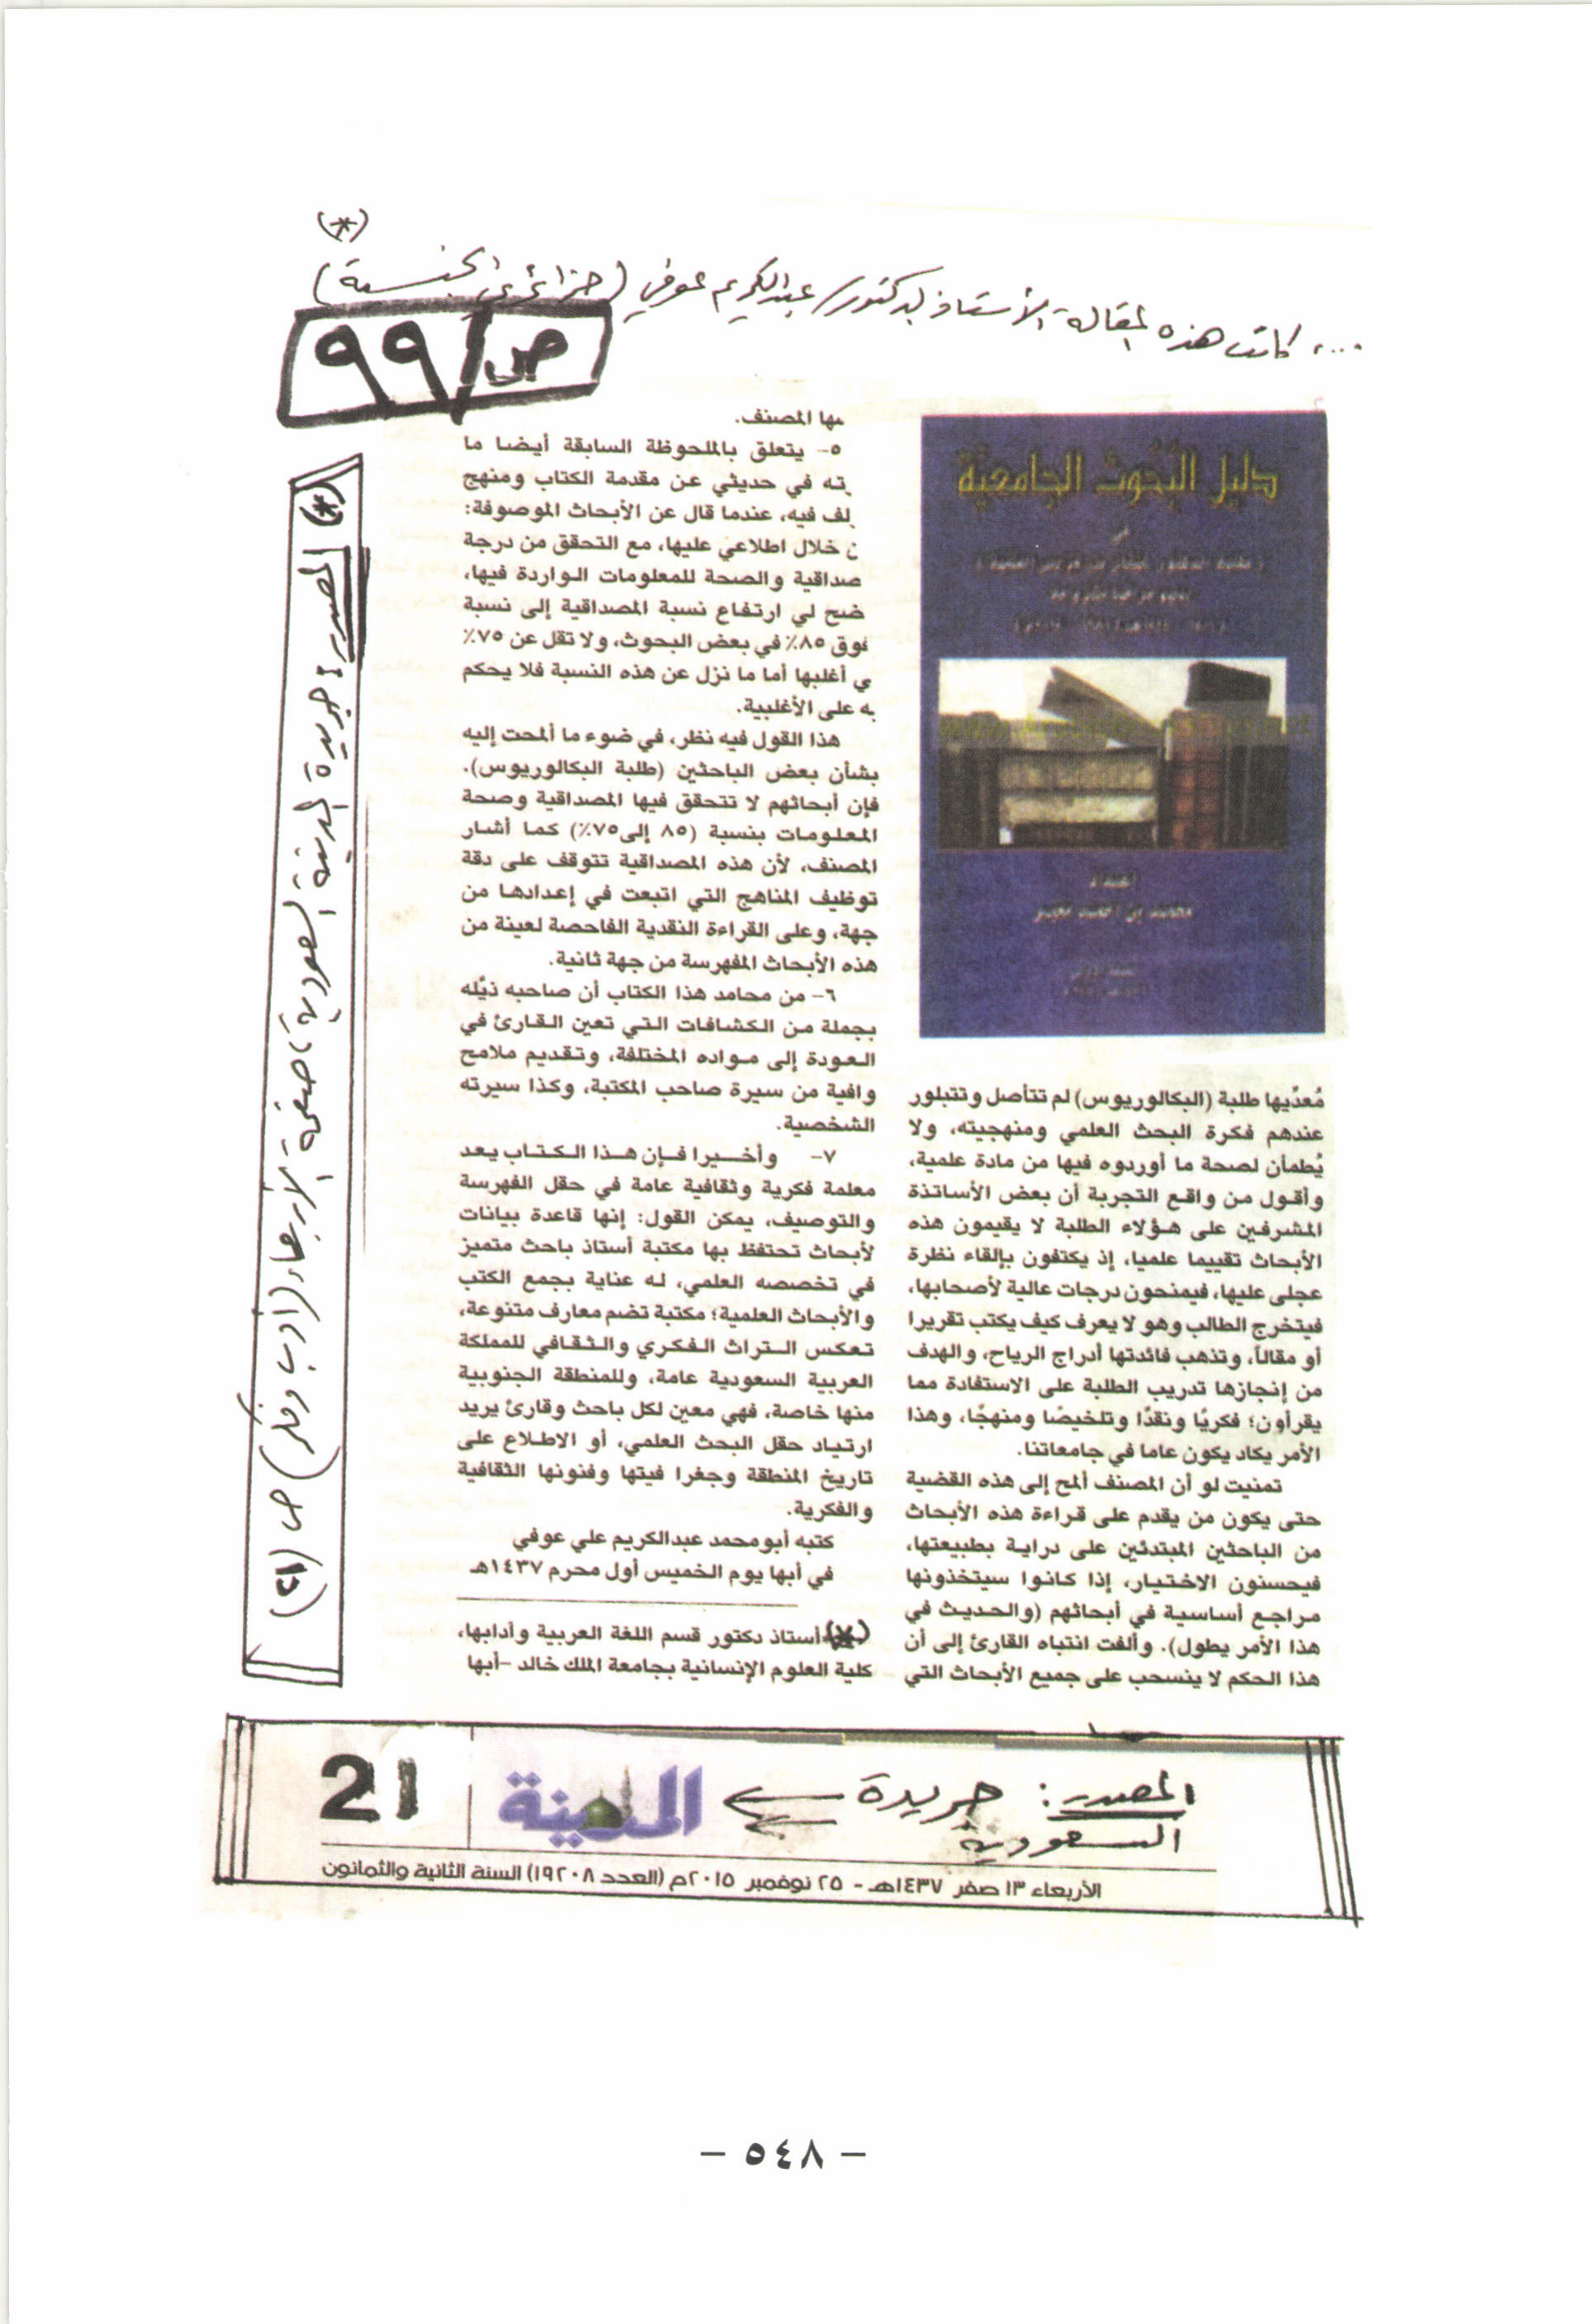 (*)
.... كاتب هذه المقالة الأستاذ الدكتور/ عبدالكريم عوفي (جزائري الجنسية)
ص/ ٩٩
دليل البحوث الجامعية
في
إعداد
محمد بن أحمد معبر
مُعدِّيها طلبة (البكالوريوس) لم تتأصل وتتبلور
عندهم فكرة البحث العلمي ومنهجيته، ولا
يُطمأن لصحة ما أوردوه فيها من مادة علمية،
وأقول من واقع التجربة أن بعض الأساتذة
المشرفين على هؤلاء الطلبة لا يقيمون هذه
الأبحاث تقييما علميا، إذ يكتفون بإلقاء نظرة
عجلى عليها، فيمنحون درجات عالية لأصحابها،
فيتخرج الطالب وهو لا يعرف كيف يكتب تقريرا
أو مقالاً، وتذهب فائدتها أدراج الرياح، والهدف
من إنجازها تدريب الطلبة على الاستفادة مما
يقرأون؛ فكريًا ونقدًا وتلخيصًا ومنهجًا، وهذا
الأمر يكاد يكون عاما في جامعاتنا.
تمنيت لو أن المصنف ألمح إلى هذه القضية
حتى يكون من يقدم على قراءة هذه الأبحاث
من الباحثين المبتدئين على دراية بطبيعتها،
فيحسنون الاختيار، إذا كانوا سيتخذونها
مراجع أساسية في أبحاثهم (والحديث في
هذا الأمر يطول). وألفت انتباه القارئ إلى أن
هذا الحكم لا ينسحب على جميع الأبحاث التي
بها المصنف.
٥- يتعلق بالملحوظة السابقة أيضا ما
رته في حديثي عن مقدمة الكتاب ومنهج
لف فيه، عندما قال عن الأبحاث الموصوفة:
ن خلال اطلاعي عليها، مع التحقق من درجة
صداقية والصحة للمعلومات الواردة فيها،
ضح لي ارتفاع نسبة المصداقية إلى نسبة
فوق ٨٥٪ في بعض البحوث، ولا تقل عن ٧٥٪
ي أغلبها أما ما نزل عن هذه النسبة فلا يحكم
به على الأغلبية.
هذا القول فيه نظر، في ضوء ما ألمحت إليه
بشأن بعض الباحثين (طلبة البكالوريوس).
فإن أبحاثهم لا تتحقق فيها المصداقية وصحة
المعلومات بنسبة (٨٥ إلى٧٥٪) كما أشار
المصنف، لأن هذه المصداقية تتوقف على دقة
توظيف المناهج التي اتبعت في إعدادها من
جهة، وعلى القراءة النقدية الفاحصة لعينة من
هذه الأبحاث المفهرسة من جهة ثانية.
٦- من محامد هذا الكتاب أن صاحبه ذيّله
بجملة من الكشافات التي تعين القارئ في
العودة إلى مواده المختلفة، وتقديم ملامح
وافية من سيرة صاحب المكتبة، وكذا سيرته
الشخصية.
٧- وأخيرا فإن هذا الكتاب يعد
معلمة فكرية وثقافية عامة في حقل الفهرسة
والتوصيف، يمكن القول: إنها قاعدة بيانات
لأبحاث تحتفظ بها مكتبة أستاذ باحث متميز
في تخصصه العلمي، له عناية بجمع الكتب
والأبحاث العلمية؛ مكتبة تضم معارف متنوعة،
تعكس التراث الفكري والثقافي للمملكة
العربية السعودية عامة، وللمنطقة الجنوبية
منها خاصة، فهي معين لكل باحث وقارئ يريد
ارتياد حقل البحث العلمي، أو الاطلاع على
تاريخ المنطقة وجغرا فيتها وفنونها الثقافية
والفكرية.
كتبه أبو محمد عبدالكريم علي عوفي
في أبها يوم الخميس أول محرم ١٤٣٧هـ
(*) أستاذ دكتور قسم اللغة العربية وأدابها،
كلية العلوم الإنسانية بجامعة الملك خالد -أبها
(*) المصدر: جريدة المدينة السعودية، صفحة الأربعاء (أدب وفكر) ص (٢١)
المصدر: جريدة المدينة 21
السعودية
الأربعاء ١٣ صفر ١٤٣٧هـ - ٢٥ نوفمبر ٢٠١٥م (العدد ١٩٢٠٨) السنة الثانية والثمانون
- ٥٤٨ -